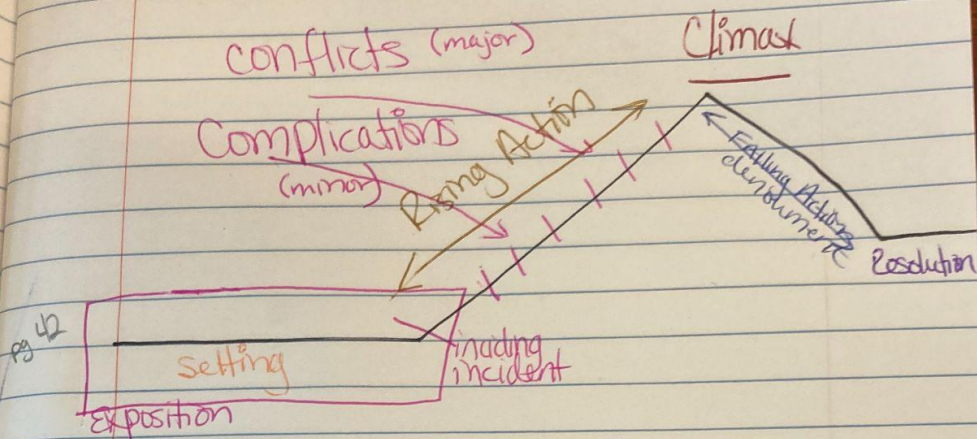 Conflicts (major)
Climax
Complications
(minor)
Rising Action
Falling Action
denoument
Resolution
pg 42
setting
inciding
incident
Exposition